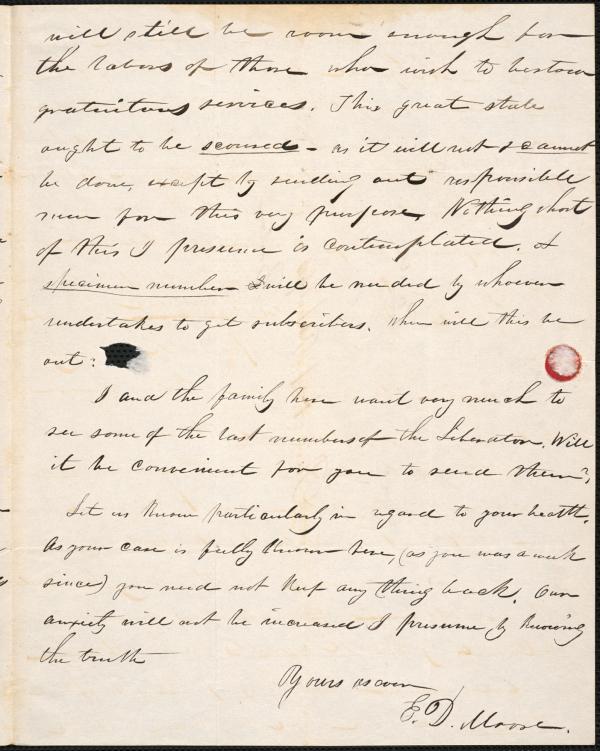 will still be room enough for
the labors of those who wish to bestow
gratuitous services. This great state
ought to be scoured - as it will not & cannot
be done, except by sending out responsible
men for this very purpose. Nothing short
of this I presume is contemplated. A
specimen number will be needed by whoever
undertakes to get subscribers. When will this be
out?
I and the family here want very much to
see some of the last numbers of the Liberator. Will
it be convenient for you to send them?
Let us know particularly in regard to your health.
As your case is fully known here, (as you was a week
since) you need not keep any thing back. Our
anxiety will not be increased I presume by knowing
the truth
Yours as ever
E. D. Moore.